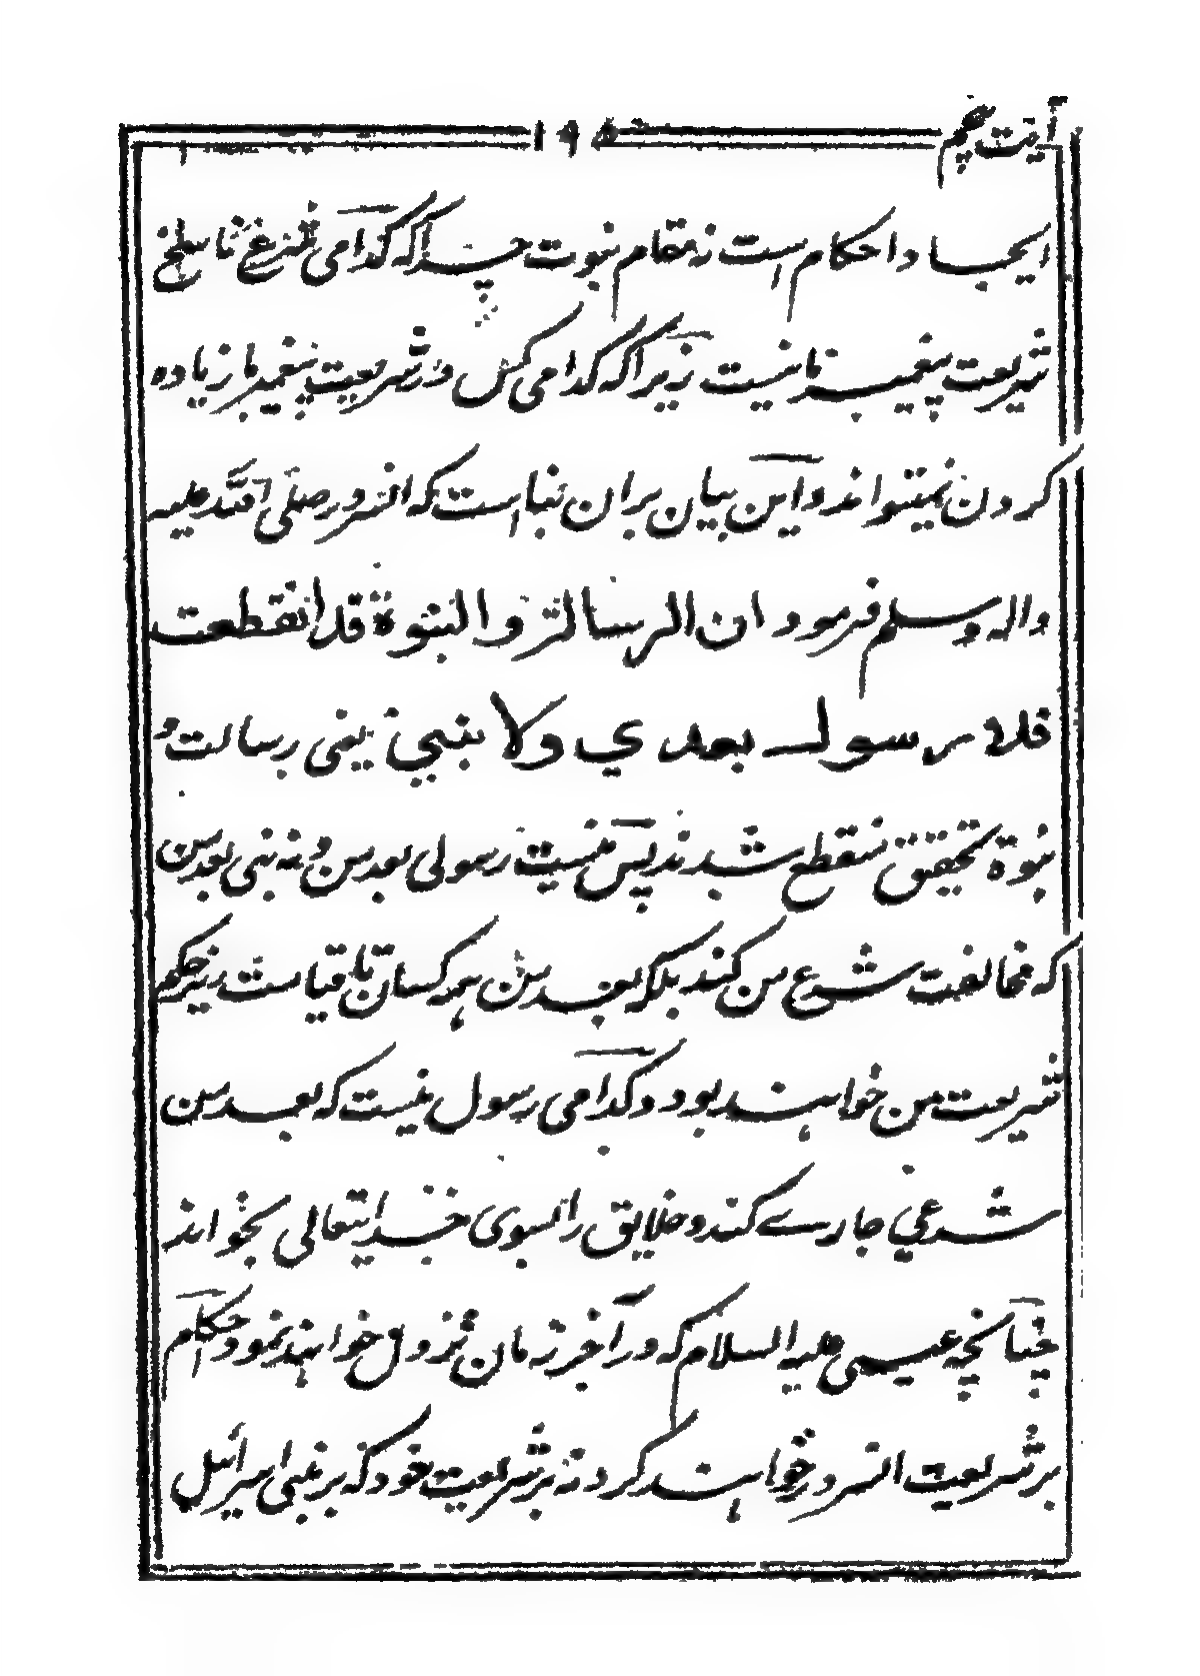 آیت پنجم
۱۹۵
ایجاد احکام است نه مقام نبوت چرا که کدامی شرع ناسخ
شریعت پیغمبر ما نیست زیرا که کدامی کس در شریعت پیغمبر ما زیاده
کردن نمیتواند و این بیان بران بنا است که انسرور صلی الله علیه
واله وسلم فرمود ان الرسالة و النبوة قد انقطعت
فلا رسول بعدي ولا بنبي یعنی رسالت و
نبوة بتحقیق منقطع شدند پس نیست رسولی بعد من و نه نبی بعد من
که مخالفت شرع من کند بلکه بعد من همه کسان تا قیامت زیر حکم
شریعت من خواهند بود و کدامی رسول نیست که بعد من
شرعی جاری کند و خلایق را بسوی خدایتعالی بخواند
چنانچه عیسی علیه السلام که در آخر زمان نزول خواهند نمود احکام
بر شریعت انسرور خواهند کرد نه بر شریعت خود که بر بنی اسرائیل